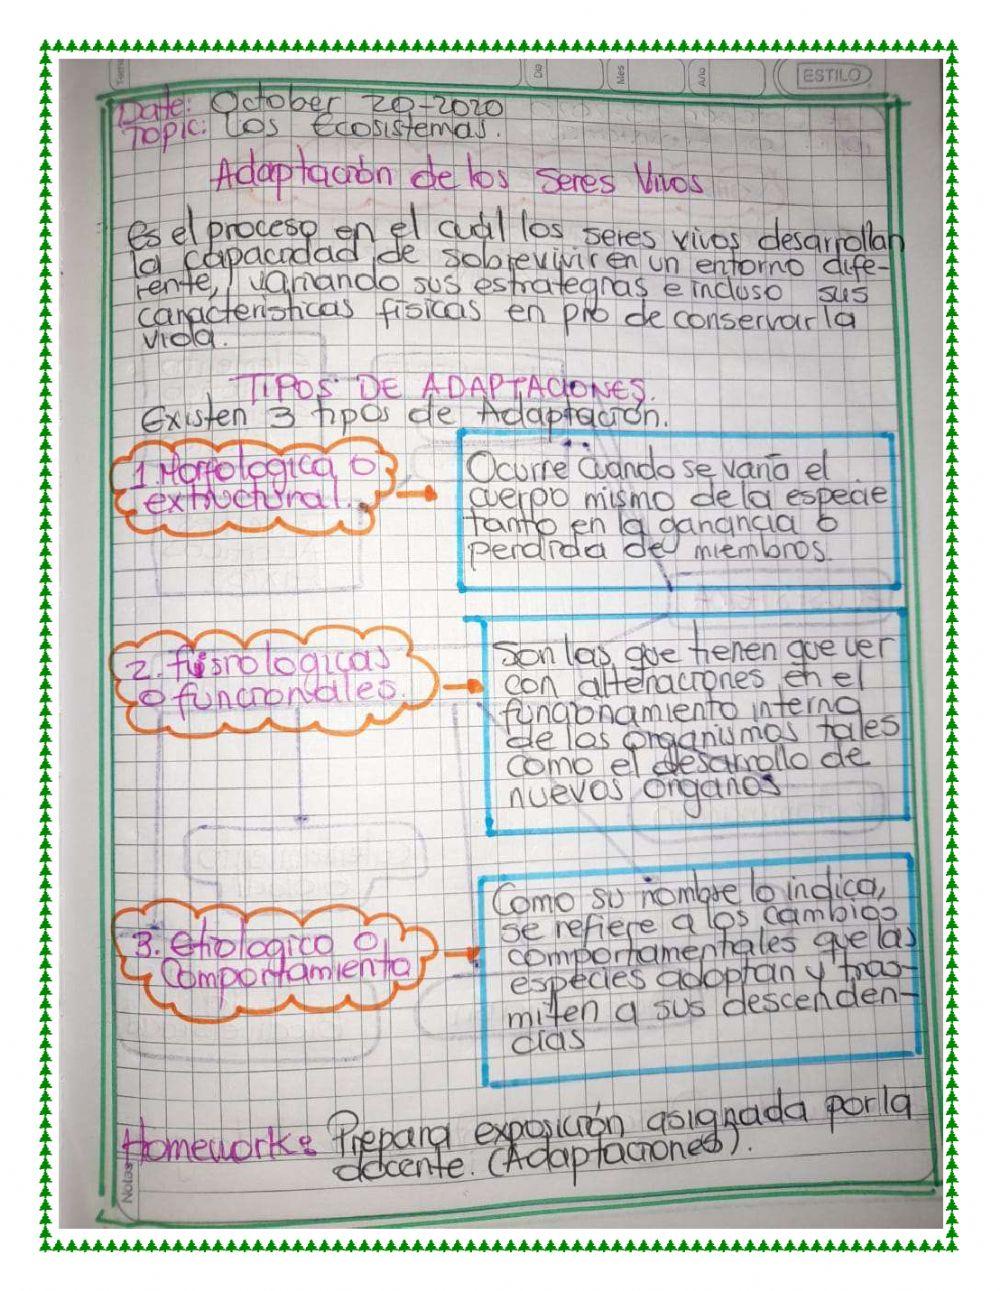 Tema
Día
Mes
Año
ESTILO
Date: October 20-2020
Topic: Los Ecosistemas.
Adaptación de los seres vivos
es el proceso en el cuál los seres vivos desarrollan
la capacidad de sobrevivir en un entorno dife-
rente, variando sus estrategias e incluso sus
características físicas en pro de conservar la
vida.
TIPOS DE ADAPTACIONES.
Existen 3 tipos de Adaptación.
1. Morfologica o
extructural.
Ocurre cuando se varía el
cuerpo mismo de la especie
tanto en la ganancia o
perdida de miembros.
2. fisiologicas
o funcionales.
Son las que tienen que ver
con alteraciones en el
funcionamiento interno
de los organismos tales
como el desarrollo de
nuevos organos
3. etiologico o
Comportamiento
Como su nombre lo indica,
se refiere a los cambios
comportamentales que las
especies adoptan y tras-
miten a sus descenden-
cias
Homework: Prepara exposición asignada por la
docente. (Adaptaciones).
Notas